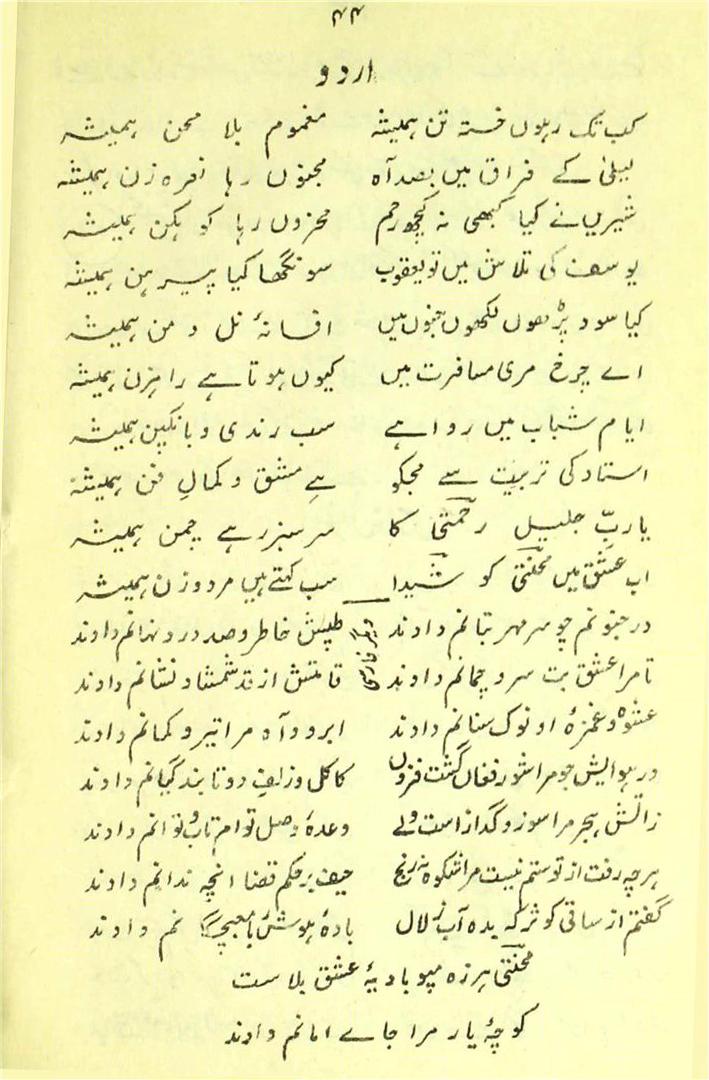 ۴۴
اردو
کب تک رہوں خستہ تن ہمیشہ مغموم بلا محن ہمیشہ
لیلیٰ کے فراق میں بصد آہ مجنوں رہا نعرہ زن ہمیشہ
شیریں نے کیا کبھی نہ کچھ رحم محزوں رہا کوہکن ہمیشہ
یوسف کی تلاش میں تو یعقوب سونگھا کیا پیرہن ہمیشہ
کیا سود پڑھوں لکھوں جنوں میں افسانۂ نل و من ہمیشہ
اے چرخ مری مسافرت میں کیوں ہوتا ہے راہزن ہمیشہ
ایام شباب میں روا ہے سب رندی و بانکپن ہمیشہ
استاد کی تربیت سے مجکو ہے مشق و کمالِ فن ہمیشہ
یا ربِّ جلیل رحمتی کا سرسبز رہے چمن ہمیشہ
اب عشق میں محنتی کو شیدا سب کہتے ہیں مرد و زن ہمیشہ
دیگر فارسی
در جنونم چو سر مہر بتانم دادند طپش خاطر و صد درد نہانم دادند
تا مرا عشق بت سرو چمانم دادند قامتش از قد شمشاد نشانم دادند
عشوہ و غمزۂ او نوک سنانم دادند ابرو و آہ مرا تیر و کمانم دادند
در ہوایش جو مرا شور فغاں گشت فزوں کاکل و زلف دوتا بند گیانم دادند
زآتش ہجر مرا سوز و گداز است ولے وعدۂ وصل توام تاب و توانم دادند
ہرچہ رفت از تو ستم نیست مرا شکوہ نہ رنج حیف بر حکم قضا انچہ ندانم دادند
گفتم از ساقی کوثر کہ بدہ آب زلال بادۂ ہوش نم دادند
محنتی ہرزہ مپو بادیۂ عشق بلا ست
کوچۂ یار مرا جاے امانم دادند